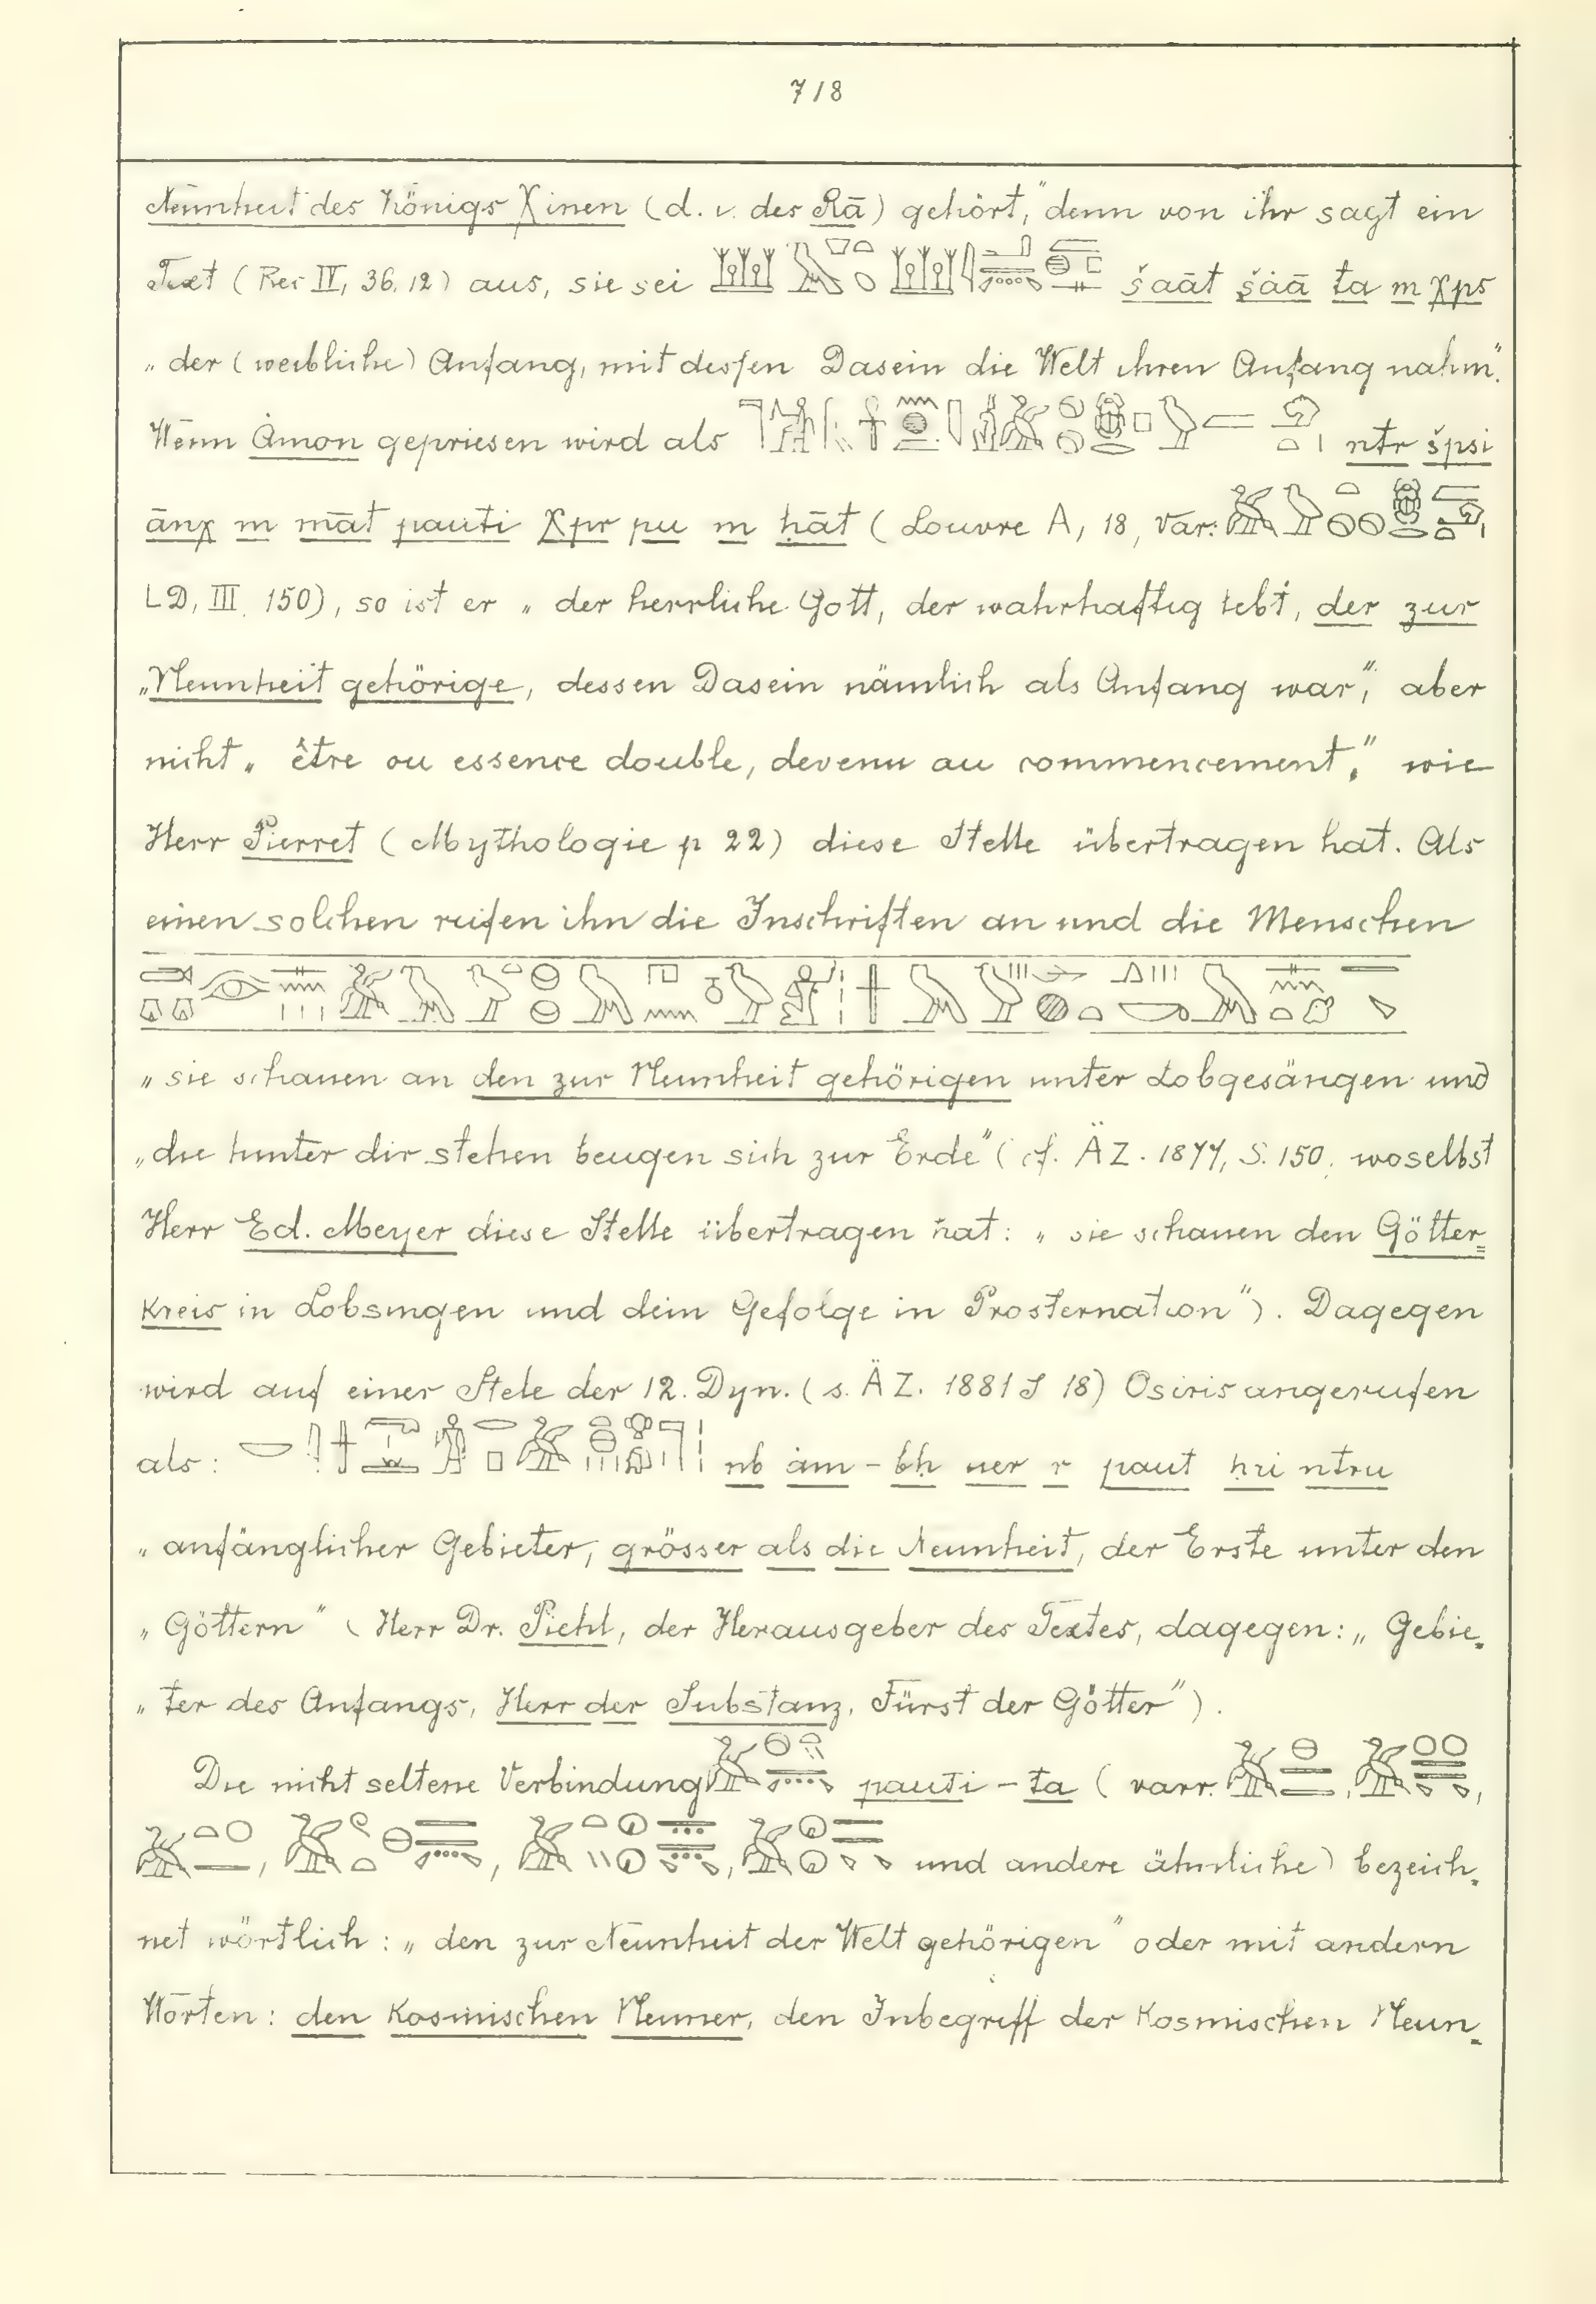 718
Neunheit des Königs Xinen (d. i. des Rā) gehört," denn von ihr sagt ein
Text (Rec IV, 36, 12) aus, sie sei šaāt šaā ta m Xps
„der (weibliche) Anfang, mit dessen Dasein die Welt ihren Anfang nahm".
Wenn Amon gepriesen wird als ntr špsi
ānχ m māt pauti Xpr pu m ḥāt (Louvre A, 18, Var:
LD, III 150), so ist er „der herrliche Gott, der wahrhaftig lebt, der zur
„Neunheit gehörige, dessen Dasein nämlich als Anfang war", aber
nicht „être ou essence double, devenu au commencement," wie
Herr Pierret (Mythologie p 22) diese Stelle übertragen hat. Als
einen solchen rufen ihn die Inschriften an und die Menschen
„sie schauen an den zur Neunheit gehörigen unter Lobgesängen und
„die hinter dir stehen beugen sich zur Erde" (cf. ÄZ. 1877, S. 150, woselbst
Herr Ed. Meyer diese Stelle übertragen hat: „sie schauen den Götter=
Kreis in Lobsingen und dein Gefolge in Prosternation"). Dagegen
wird auf einer Stele der 12. Dyn. (s. ÄZ. 1881 S 18) Osiris angerufen
als: nb ȧm-bḥ uer r paut ḥri ntru
„anfänglicher Gebieter, grösser als die Neunheit, der Erste unter den
„Göttern" (Herr Dr. Piehl, der Herausgeber des Textes, dagegen: „Gebie=
„ter des Anfangs, Herr der Substanz, Fürst der Götter").
Die nicht seltene Verbindung pauti-ta (varr.
und andere ähnliche) bezeich=
net wörtlich: „den zur Neunheit der Welt gehörigen" oder mit andern
Worten: den Kosmischen Neuner, den Inbegriff der Kosmischen Neun=